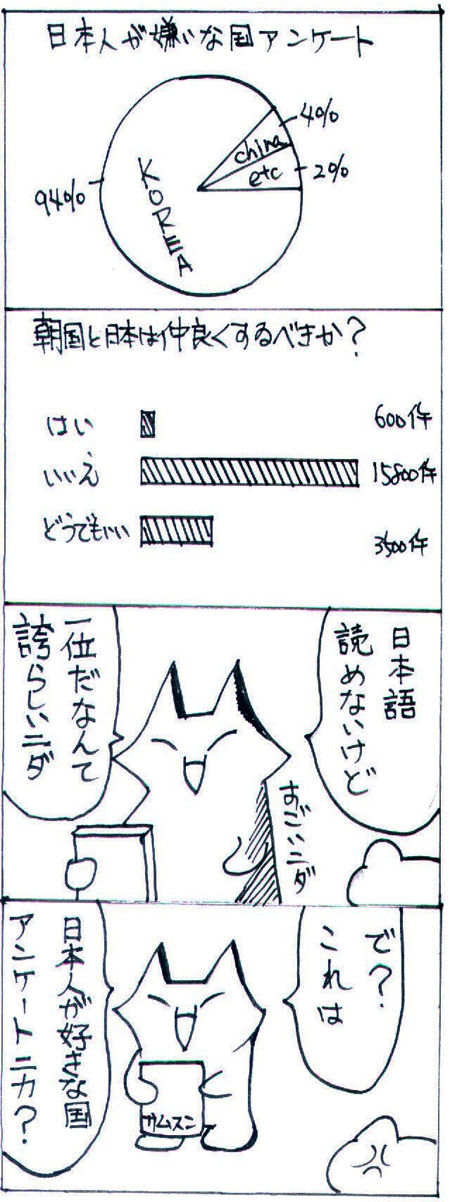 日本人が嫌いな国アンケート
4%
china
etc
2%
94%
KOREA
朝国と日本は仲良くするべきか?
はい
600件
いいえ
15800件
どうでもいい
3500件
日本語
読めないけど
一位だなんて
誇らしいニダ
すごいニダ
で?
これは
日本人が好きな国
アンケートニカ?
サムスン